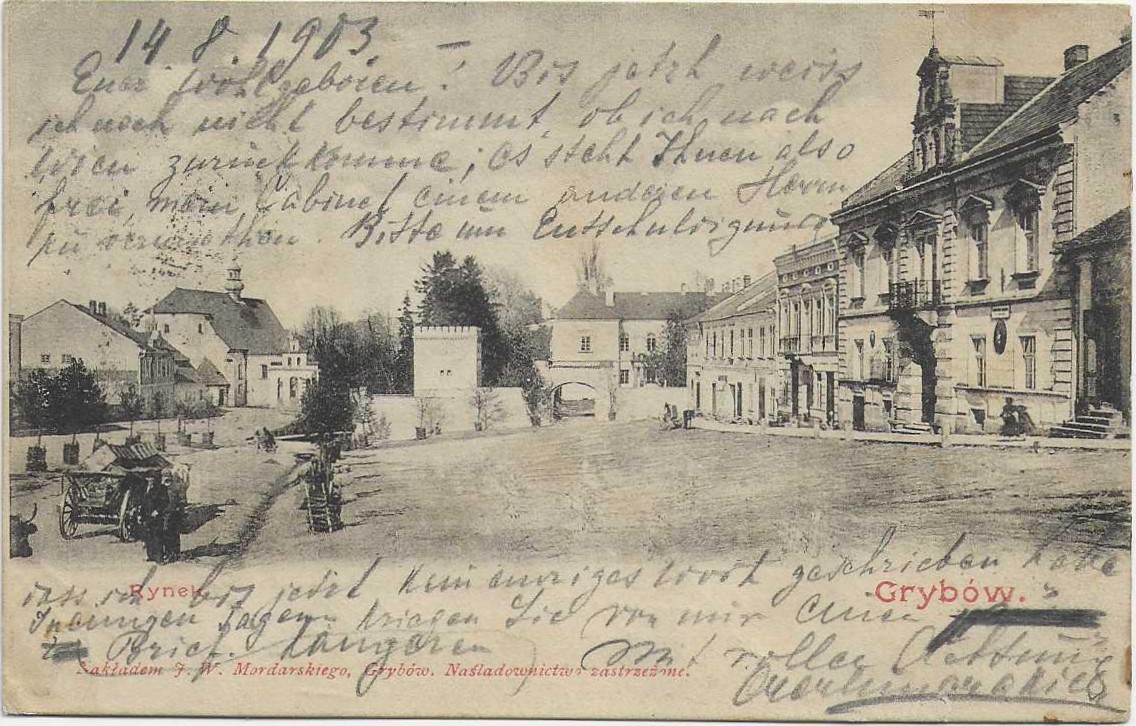 14.8.1903 –
Euer Wohlgeboren! Bis jetzt weiss
ich noch nicht bestimmt, ob ich nach
Wien zurückkomme; es steht Ihnen also
frei, mein Cabinet einem anderen Herrn
zu vermiethen. Bitte um Entschuldigung
dass ich bis jetzt kein einziges Wort geschrieben habe
Rynek
Grybów.
In einigen Tagen kriegen Sie von mir einen
längeren Brief. Mit voller Achtung
Nakładem J. W. Mordarskiego, Grybów. Naśladownictwo zastrzeżone.